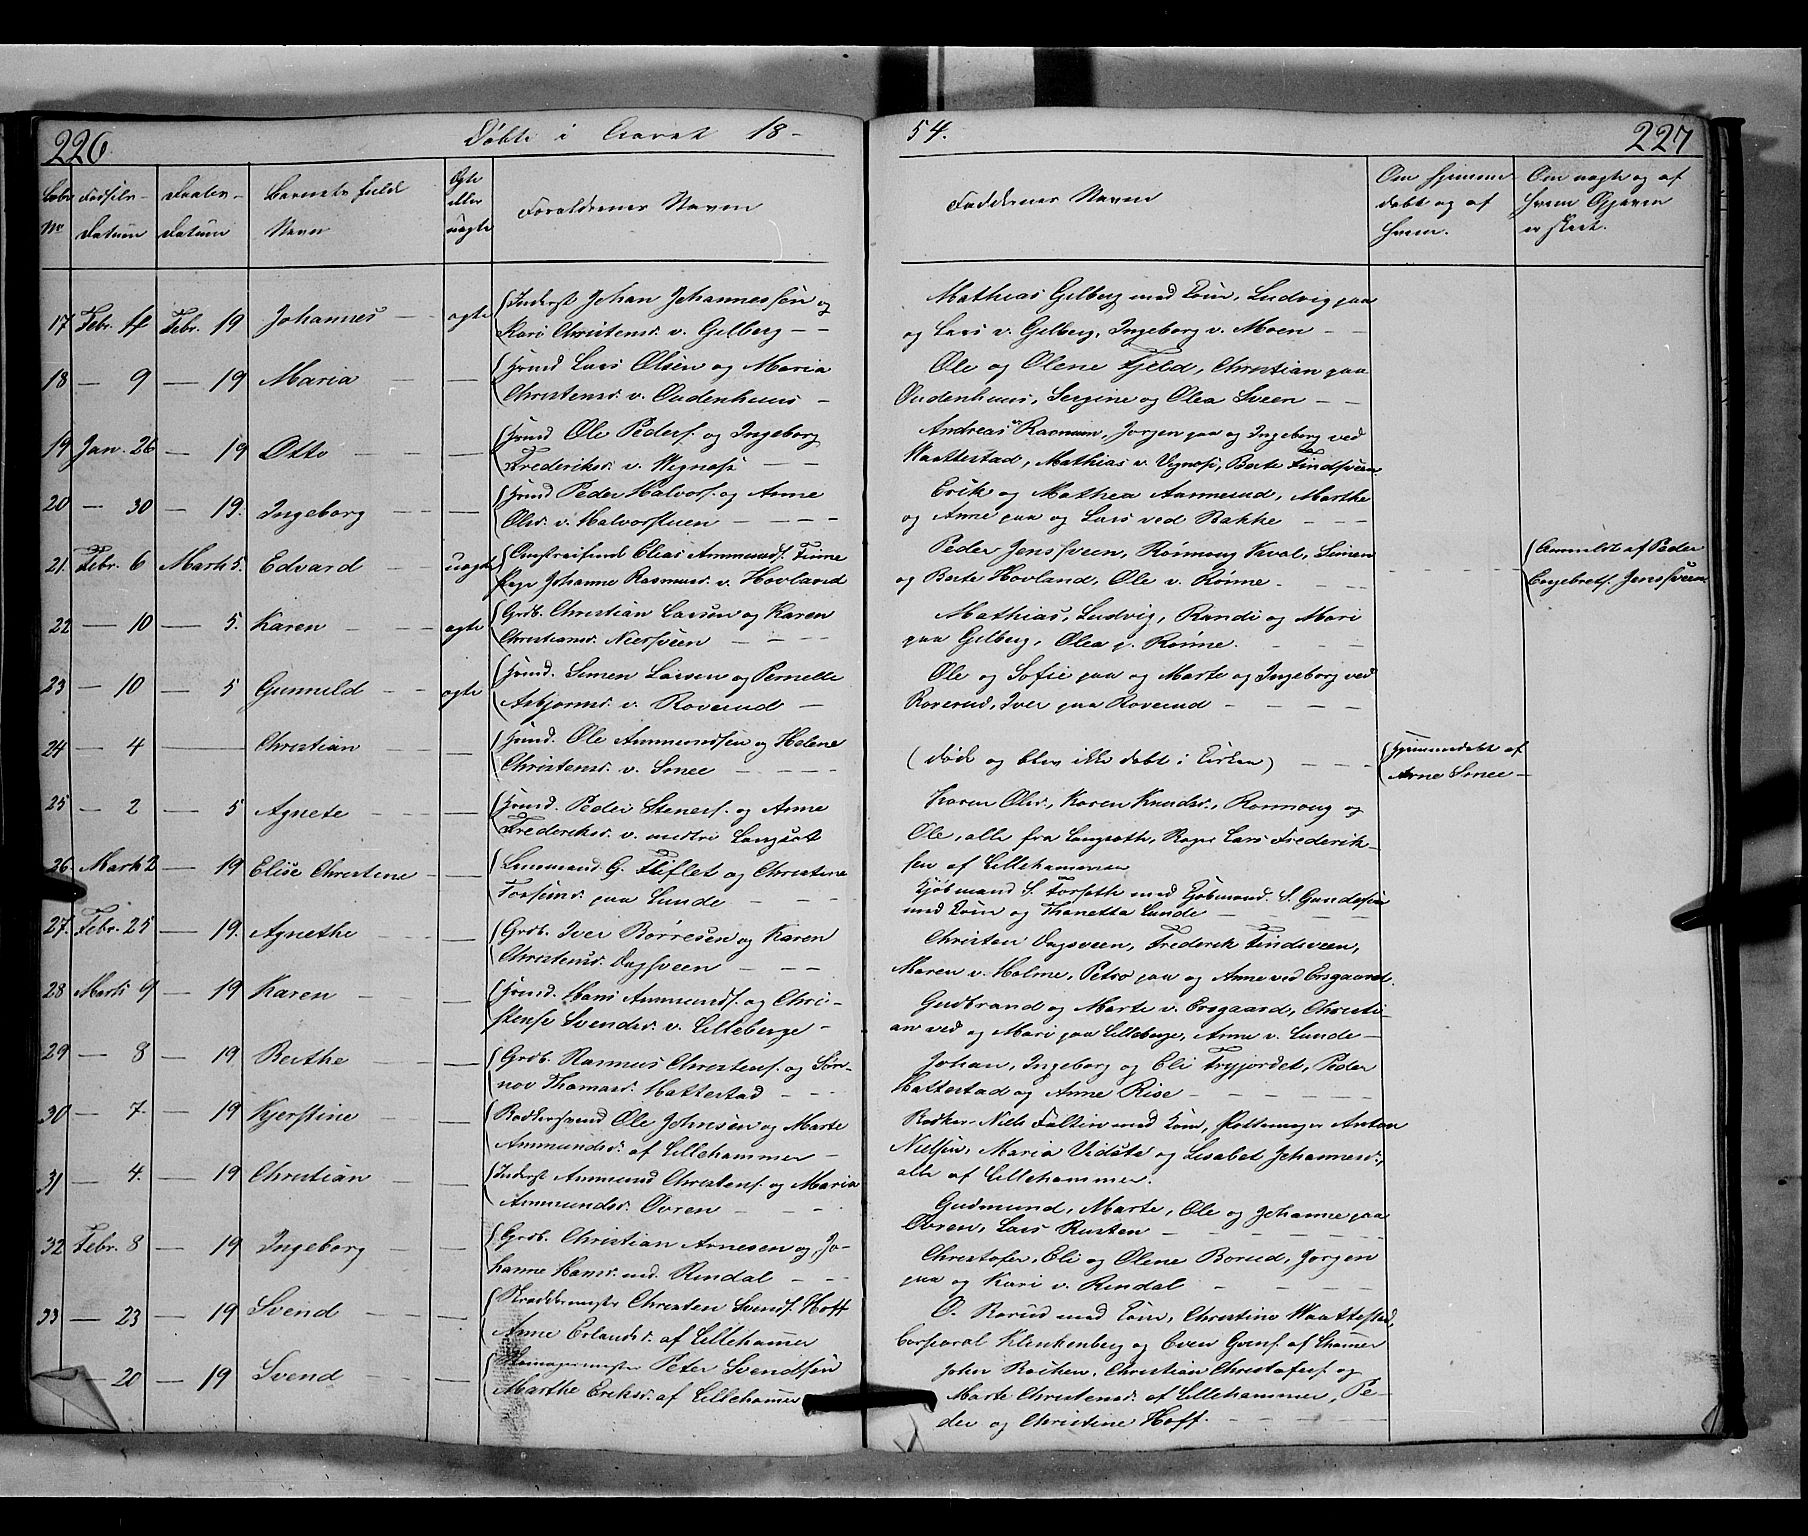 226
Døbte i Aaret 18-
54.
227
Løbe No
Fødsels-Datum
Daabs-Datum
Barnets fulde Navn
Ægte eller uægte
Forældrenes Navne
Faddernes Navne
Om hjemmedøbt og af hvem.
Om uægte og af hvem Opgaven er skeet.
17 Febr. 4 Febr. 19 Johannes — ægte Inderst Johan Johannessøn og
Kari Christensd. v. Gilberg — —
Mathias Gilberg med Kone, Ludvig paa
og Lars v. Gilberg, Ingeborg v. Moen — —
18 — 9 — 19 Maria — — Huusmd Lars Olsen og Maria
Christensd. v. Oudenhuus —
Ole og Olene Fjeld, Christian paa
Oudenhuus, Sergine og Olea Sveen — —
19 Jan. 26 — 19 Otto — — Huusmd Ole Peders. og Ingeborg
Frederiksd. v. Vignæs — —
Andreas Rasmusn, Jørgen paa og Ingeborg ved
Haattestad, Mathias v. Vignæs, Berte Findsveen
20 — 30 — 19. Ingeborg — — Huusmd Peder Halvors. og Anne
Olsd. v. Halvorstuen — — — —
Erik og Mathea Aannerud, Marthe
og Anne paa og Lars ved Bakke — — —
21. Febr. 6 Marts 5. Edvard — uægte Omstreifende Elias Ammunds.
Pige Johanne Rasmusd. v. Hovland
Peder Jenssveen, Rønnoug Kval, Simen
og Berte Hovland, Ole v. Rønne — —
Anmeldt af Peder
Engebrets. Jenssveen
22 — 10 — 5. Karen — ægte Grdb. Christian Larsen og Karen
Christiansd. Niersveen — — —
Mathias, Ludvig, Randi og Mari
paa Gilberg, Olea p. Rønne. — — —
23 — 10 — 5 Gunnild — ægte Huusmd. Simen Larsen og Pernelle
Asbjørnsd. v. Roverud —
Ole og Sofie paa og Marte og Ingeborg ved
Roverud, Iver paa Roverud — — — —
24 — 4 — Christian — — Huusmd. Ole Ammundsen og Helene
Christensd. v. Smee — — — —
(døde og blev ikke døbt i Kirken) — — —
Hjemmedøbt af
Arne Smee —
25 — 2 — 5 Agnete — — Huusmd. Peder Steners. og Anne
Frederiksd. v. nedre Langsæt
Karen Olsd., Karen Knudsd., Rønnoug og
Ole, alle fra Langsæth, Lars Frederik-
sen af Lillehammer
26. Marts 2 — 19 Elise Christine — — Lensmand G. Fliflet og Christine
Torsensd. paa Lunde — — —
Kjøbmand S. Forseth med Kjøbmand. S. Gundersen
med Kone og Thanetta Lunde — — —
27. Febr. 25 — 19. Agnethe — — Grdb. Iver Børresen og Karen
Christensd. Dagsveen — — —
Christen Dagsveen, Frederik Findsveen,
Maren v. Holme, Petro paa og Anne ved Ersgaard.
28 Marts 9 — 19 Karen — — Huusmd. Hans Ammunds. og Chri-
stense Svendsd. v. Lilleberge —
Gudbrand og Marte v. Ersgaard, Christi-
an ved og Mari paa Lilleberge, Anne v. Lunde —
29 — 8 — 19 Berthe — — Grdb. Rasmus Christens. og Søn-
nov Thomasd. Hattestad — — —
Johan, Ingeborg og Eli Trygjordet, Peder
Hattestad og Anne Rise — — — —
30 — 7 — 19 Kjerstine — — Bødkersvend Ole Johnsen og Marte
Ammundsd. af Lillehammer —
Bødker Nils Faltin med Kone, Pottemager Anton
Nielsen, Maria Vidste og Lisabet Johannesd.,
alle af Lillehammer.
31 — 4. — 19 Christian — — Inderst Ammund Christens. og Maria
Ammundsd. Ovren — — —
Gudmund, Marte, Ole og Johanne paa
Ovren, Lars Rusten — — — —
32 Febr. 8 — 19 Ingeborg — — Grdb. Christian Arnesen og Jo-
hanne Hansd. ned. Rindal — —
Christofer, Eli og Olene Borud, Jørgen
paa og Kari v. Rindal — — — —
33 — 23 — 19 Svend — — Skræddermester Christen Svends. Hoff
Anne Erlandsd. af Lillehammer
O. Borud med Kone, Christine Haattestad,
Corporal Klinkenberg og Even af Lhammer
— 20 — 19 Svend — — Peter Svendsen
Marthe Eriksd. af Lillehammer
John Christian Christofers. og
Marte Christensd. af Lillehammer, Pe-
der og Christine Hoff. — — — —